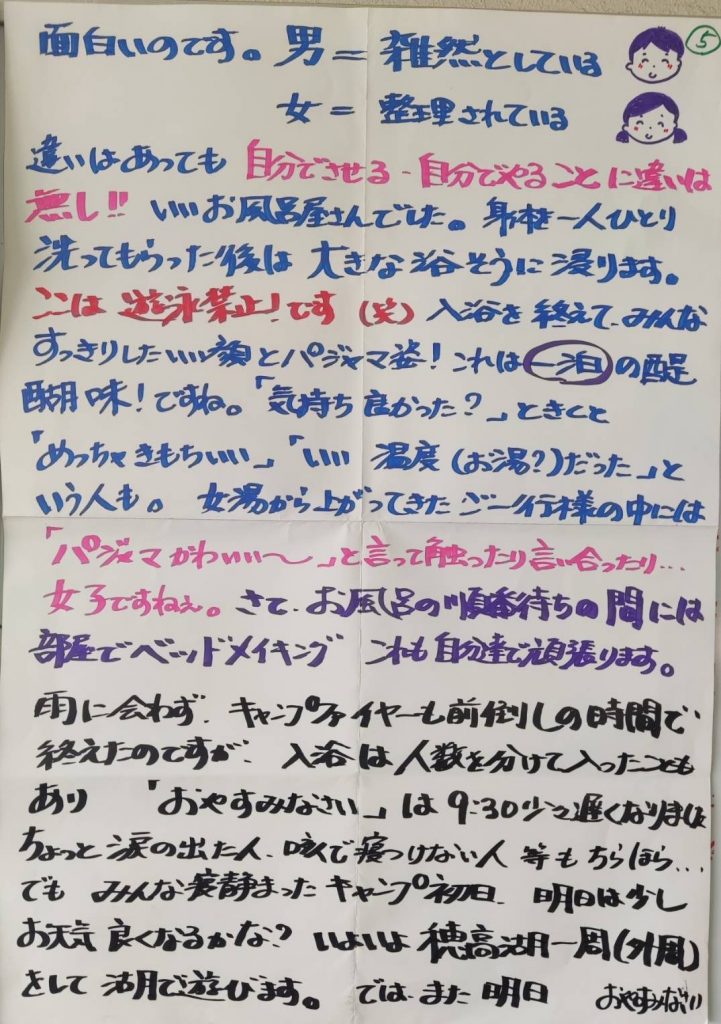 ⑤
面白いのです。男＝雑然としている
女＝整理されている
違いはあっても 自分でさせる・自分でやることに違いは
無し!! いいお風呂屋さんでした。身体を一人ひとり
洗ってもらった後は 大きな浴そうに浸ります。
ここは 遊泳禁止!です(笑) 入浴を終えて、みんな
すっきりしたいい顔とパジャマ姿! これは一泊の醍
醐味!ですね。「気持ち良かった?」ときくと
「めっちゃきもちいい」「いい 温度(お湯?)だった」と
いう人も。 女湯から上がってきたご一行様の中には
「パジャマかわいい～」と言って触ったり言い合ったり…
女子ですねぇ。さて、お風呂の順番待ちの間には
部屋でベッドメイキング これも自分達で頑張ります。
雨に会わず、キャンプファイヤーも前倒しの時間で
終えたのですが、入浴は人数を分けて入ったことも
あり 「おやすみなさい」は9:30少々遅くなりました
ちょっと涙の出た人、咳で寝つけない人 等もちらほら…
でも みんな寝静まったキャンプ初日、明日は少し
お天気良くなるかな? いよいよ穂高湖一周(外周)
をして湖で遊びます。 では、また明日 おやすみなさい